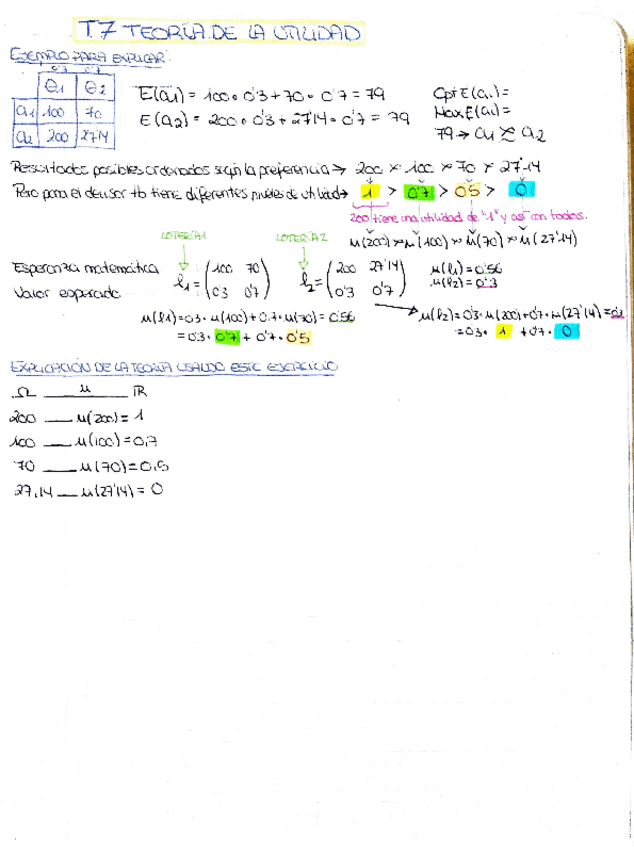 T.7 TEORÍA DE LA UTILIDAD
EJEMPLO PARA EXPLICAR:
0'3 0'7
θ1 θ2
a1 100 70
a2 200 27'14
E(a1) = 100 · 0'3 + 70 · 0'7 = 79
E(a2) = 200 · 0'3 + 27'14 · 0'7 = 79
Opt E(ai) =
Max E(ai) =
79 → a1 ≈ a2
Resultados posibles ordenados según la preferencia → 200 > 100 > 70 > 27'14
Pero para el decisor tb tiene diferentes niveles de utilidad → 1 > 0'7 > 0'5 > 0
200 tiene una utilidad de "1" y así con todos.
μ(200) > μ(100) > μ(70) > μ(27'14)
LOTERÍA 1
LOTERÍA 2
Esperanza matemática
Valor esperado
ℓ1 = (100 70
0'3 0'7)
ℓ2 = (200 27'14
0'3 0'7)
μ(ℓ1) = 0'56
μ(ℓ2) = 0'3
μ(ℓ1) = 0'3 · μ(100) + 0'7 · μ(70) = 0'56
= 0'3 · 0'7 + 0'7 · 0'5
μ(ℓ2) = 0'3 · μ(200) + 0'7 · μ(27'14) = 0'3
= 0'3 · 1 + 0'7 · 0
EXPLICACIÓN DE LA TEORÍA USANDO ESTE EJERCICIO
Ω μ ℝ
200 — μ(200) = 1
100 — μ(100) = 0,7
70 — μ(70) = 0,5
27,14 — μ(27'14) = 0